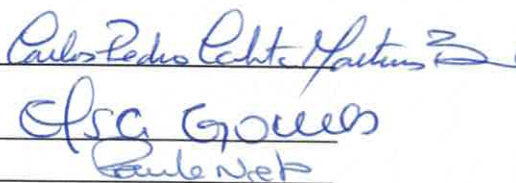 Carlos Pedro Calixto Martins
Elsa Gomes
Paula Neto